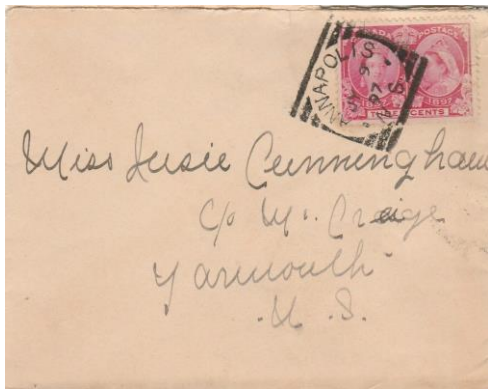 CANADA POSTAGE
1897
THREE CENTS
ANNAPOLIS
97
Miss Susie Cunningham
c/o Mr. Craige
Yarmouth
N. S.